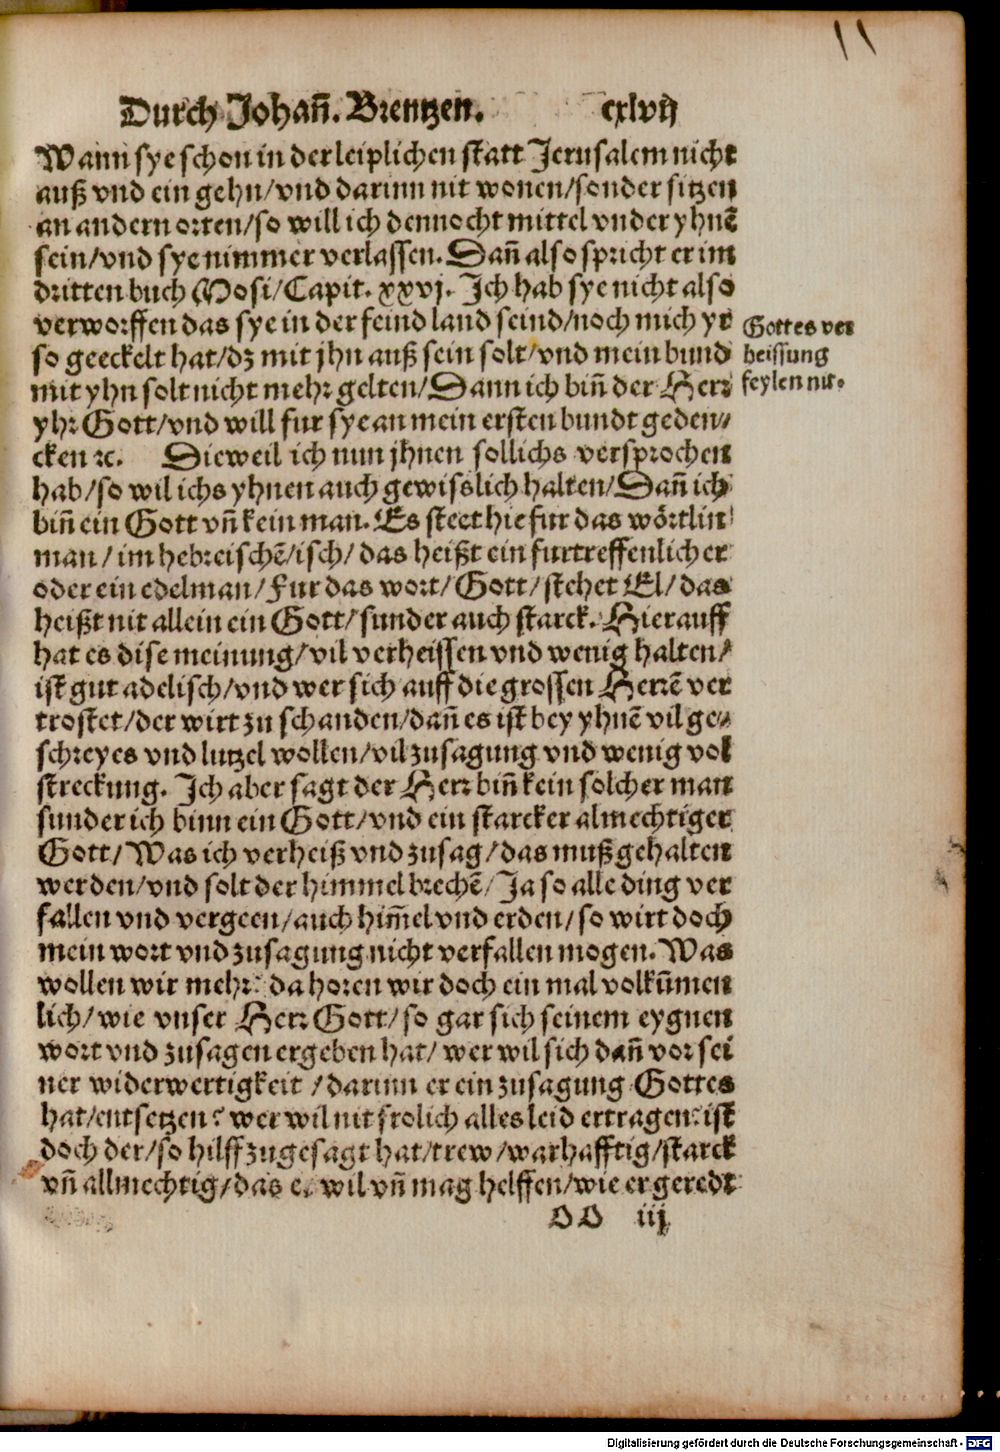 Durch Johañ. Brentzen. cxlvij
Wann sye schon in der leiplichen statt Jerusalem nicht
auß vnd ein gehn/vnd darinn nit wonen/sonder sitzen
an andern orten/so will ich dennocht mittel vnder yhnẽ
sein/vnd sye nimmer verlassen. Dañ also spricht er im
dritten buch Mosi/Capit. xxvj. Ich hab sye nicht also
verworffen das sye in der feind land seind/noch mich yr
so geeckelt hat/dz mit jhn auß sein solt/vnd mein bund
mit yhn solt nicht mehr gelten/Dann ich biñ der Herr
yhr Gott/vnd will fur sye an mein ersten bundt geden/
cken ꝛc. Dieweil ich nun jhnen sollichs versprochen
hab/so wil ichs yhnen auch gewisslich halten/Dañ ich
biñ ein Gott vñ kein man. Es steet hie fur das wörtlin
man/im hebreischẽ/isch/das heißt ein furtreffenlicher
oder ein edelman/Fur das wort/Gott/stehet El/das
heißt nit allein ein Gott/sunder auch starck. Hierauff
hat es dise meinung/vil verheissen vnd wenig halten/
ist gut adelisch/vnd wer sich auff die grossen Herrẽ ver
trostet/der wirt zu schanden/dañ es ist bey yhnẽ vil ge/
schreyes vnd lutzel wollen/vil zusagung vnd wenig vol
streckung. Ich aber sagt der Herr biñ kein solcher man
sunder ich binn ein Gott/vnd ein starcker almechtiger
Gott/Was ich verheiß vnd zusag/das muß gehalten
werden/vnd solt der himmel brechẽ/Ja so alle ding ver
fallen vnd vergeen/auch him̃el vnd erden/so wirt doch
mein wort vnd zusagung nicht verfallen mogen. Was
wollen wir mehr? da horen wir doch ein mal volkũmen
lich/wie vnser Herr Gott/so gar sich seinem eygnen
wort vnd zusagen ergeben hat/wer wil sich dañ vor sei
ner widerwertigkeit/darinn er ein zusagung Gottes
hat/entsetzen? wer wil nit frolich alles leid ertragen? ist
doch der/so hilff zugesagt hat/trew/warhafftig/starck
vñ allmechtig/das e. wil vñ mag helffen/wie er geredt
OO iij
Gottes ver
heissung
feylen nit.
11
Digitalisierung gefördert durch die Deutsche Forschungsgemeinschaft - DFG